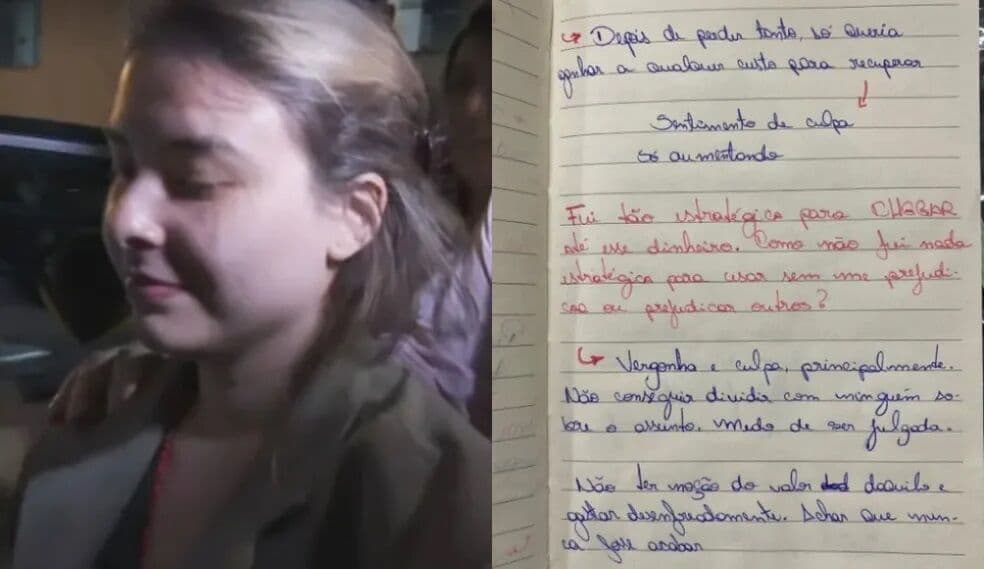 ↳ Depois de perder tanto, só queria
ganhar a qualquer custo para recuperar
↓
Sentimento de culpa
só aumentando
Fui tão estratégica para CHEGAR
até esse dinheiro. Como não fui nada
estratégica para usar sem me prejudi-
car ou prejudicar outros?
↳ Vergonha e culpa, principalmente.
Não conseguir dividir com ninguém so-
bre o assunto. Medo de ser julgada.
Não ter noção do valor daquilo e
gastar desenfreadamente. Achar que nun-
ca fosse acabar